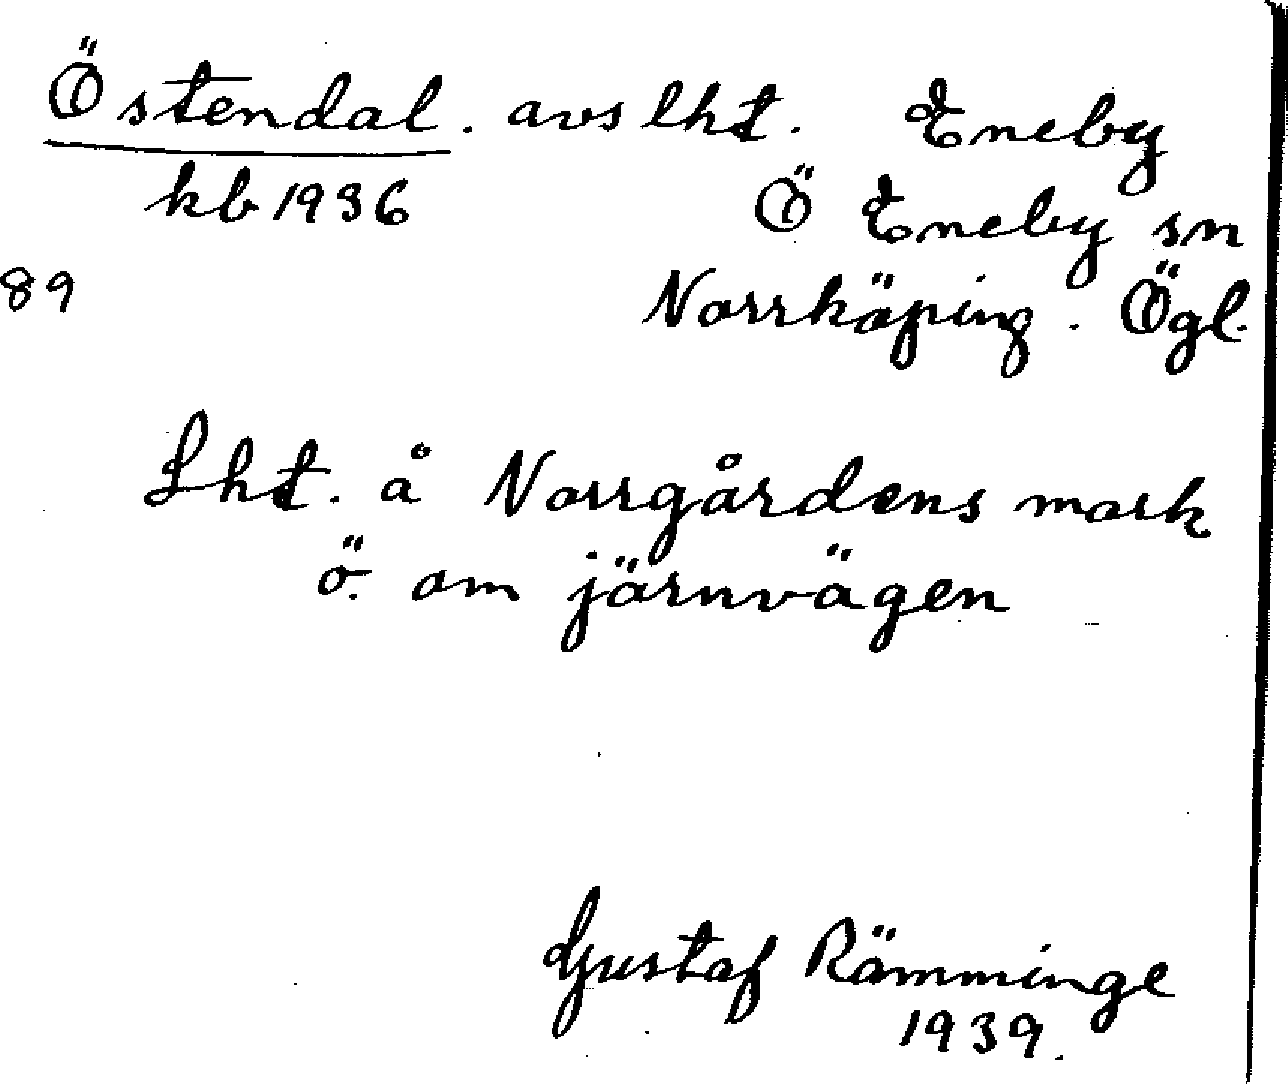 Östendal. avs lht. Eneby
kb 1936 Ö Eneby sn
89 Norrköping. Ögl.
Lht. å Norrgårdens mark
ö. om järnvägen
Gustaf Rämminge
1939.